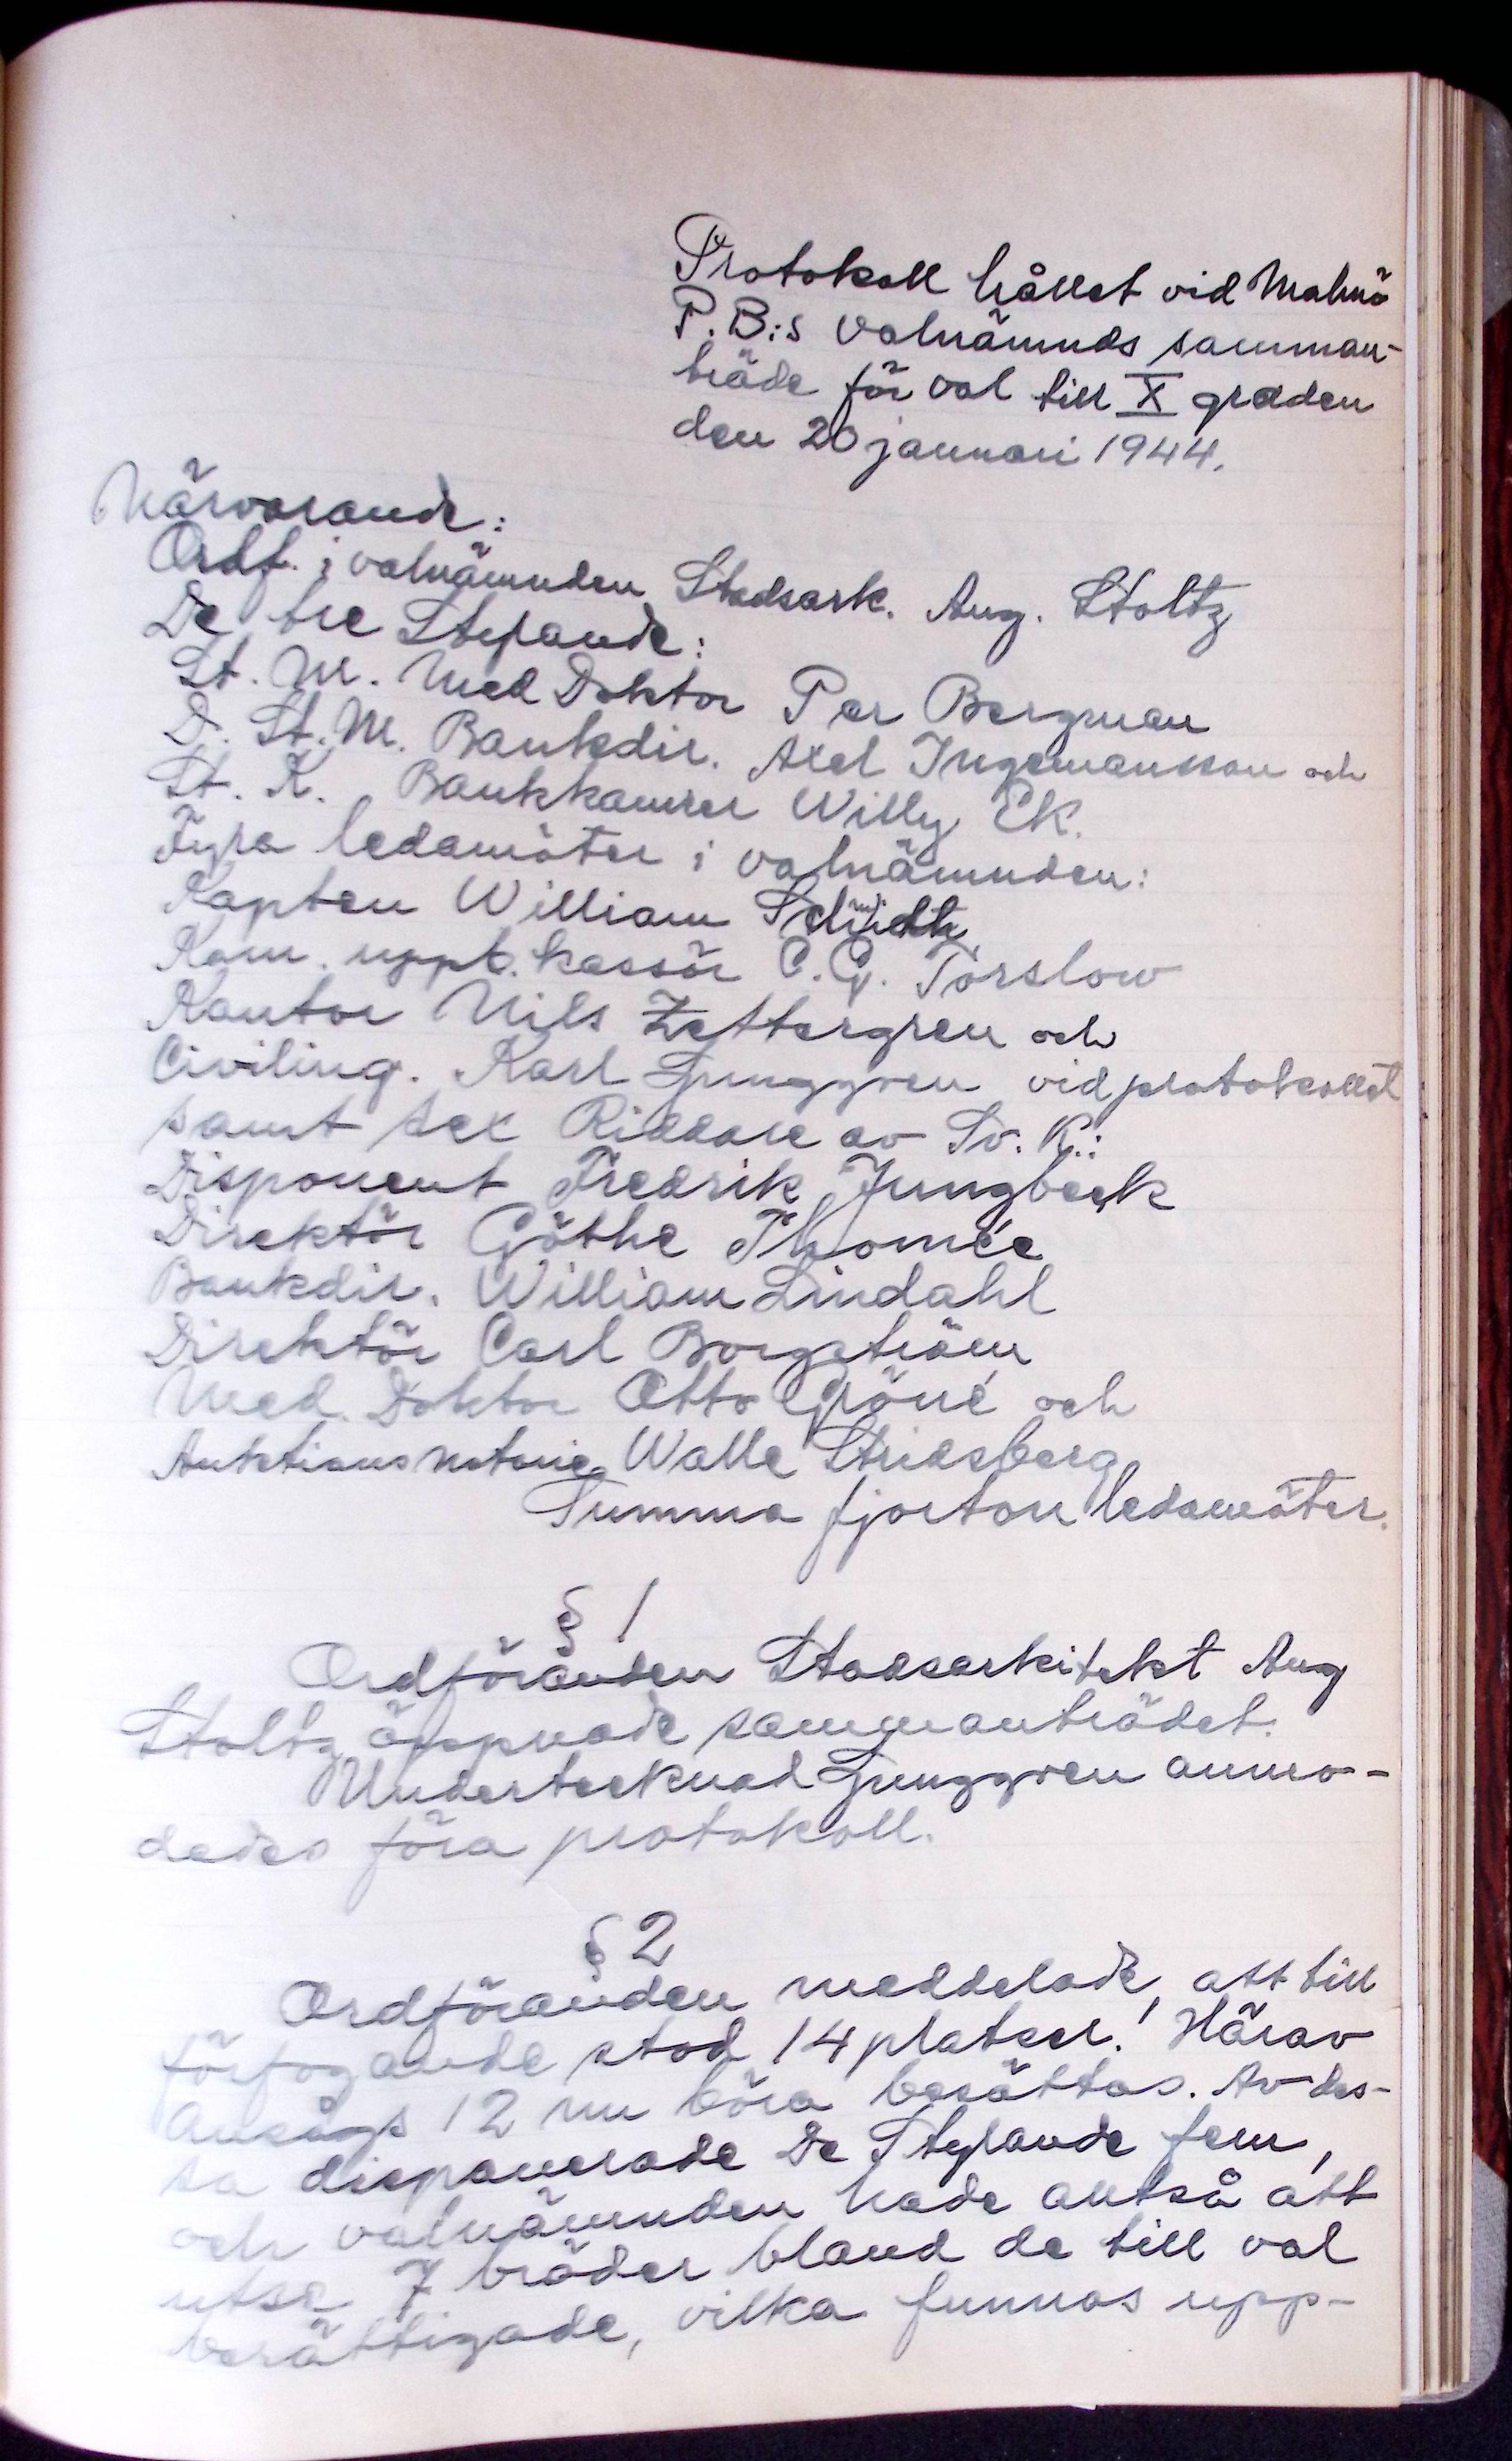 Protokoll hållet vid Malmö
P.B:s valnämnds samman-
träde för val till X graden
den 20 januari 1944.
Närvarande:
Ordf. i valnämnden Stadsark. Aug. Stoltz
De tre Styrande:
St. M. Med Doktor Per Bergman
D. St. M. Bankdir. Axel Ingemansson och
St. K. Bankkamrer Willy Ek.
Fyra ledamöter i valnämnden:
Kapten William
Kam. uppb. kassör C. G. Torslow
Kantor Nils Zettergren och
Civiling. Karl Ljunggren vid protokollet
samt sex Riddare av Sv. K.:
Disponent Fredrik Jungbeck
Direktör Göthe Thomée
Bankdir. William Lindahl
Direktör Carl Borgström
Med. Doktor Otto Gröné och
Auktionsnotarie Walle Stridsberg
Summa fjorton ledamöter.
§ 1
Ordföranden Stadsarkitekt Aug
Stoltz öppnade sammanträdet.
Undertecknad Ljunggren anmo-
dades föra protokoll.
§ 2
Ordföranden meddelade, att till
förfogande stod 14 platser! Härav
ansågs 12 nu böra besättas. Av des-
sa disponerade De Styrande fem,
och valnämnden hade alltså att
utse 7 bröder bland de till val
berättigade, vilka funnos upp-